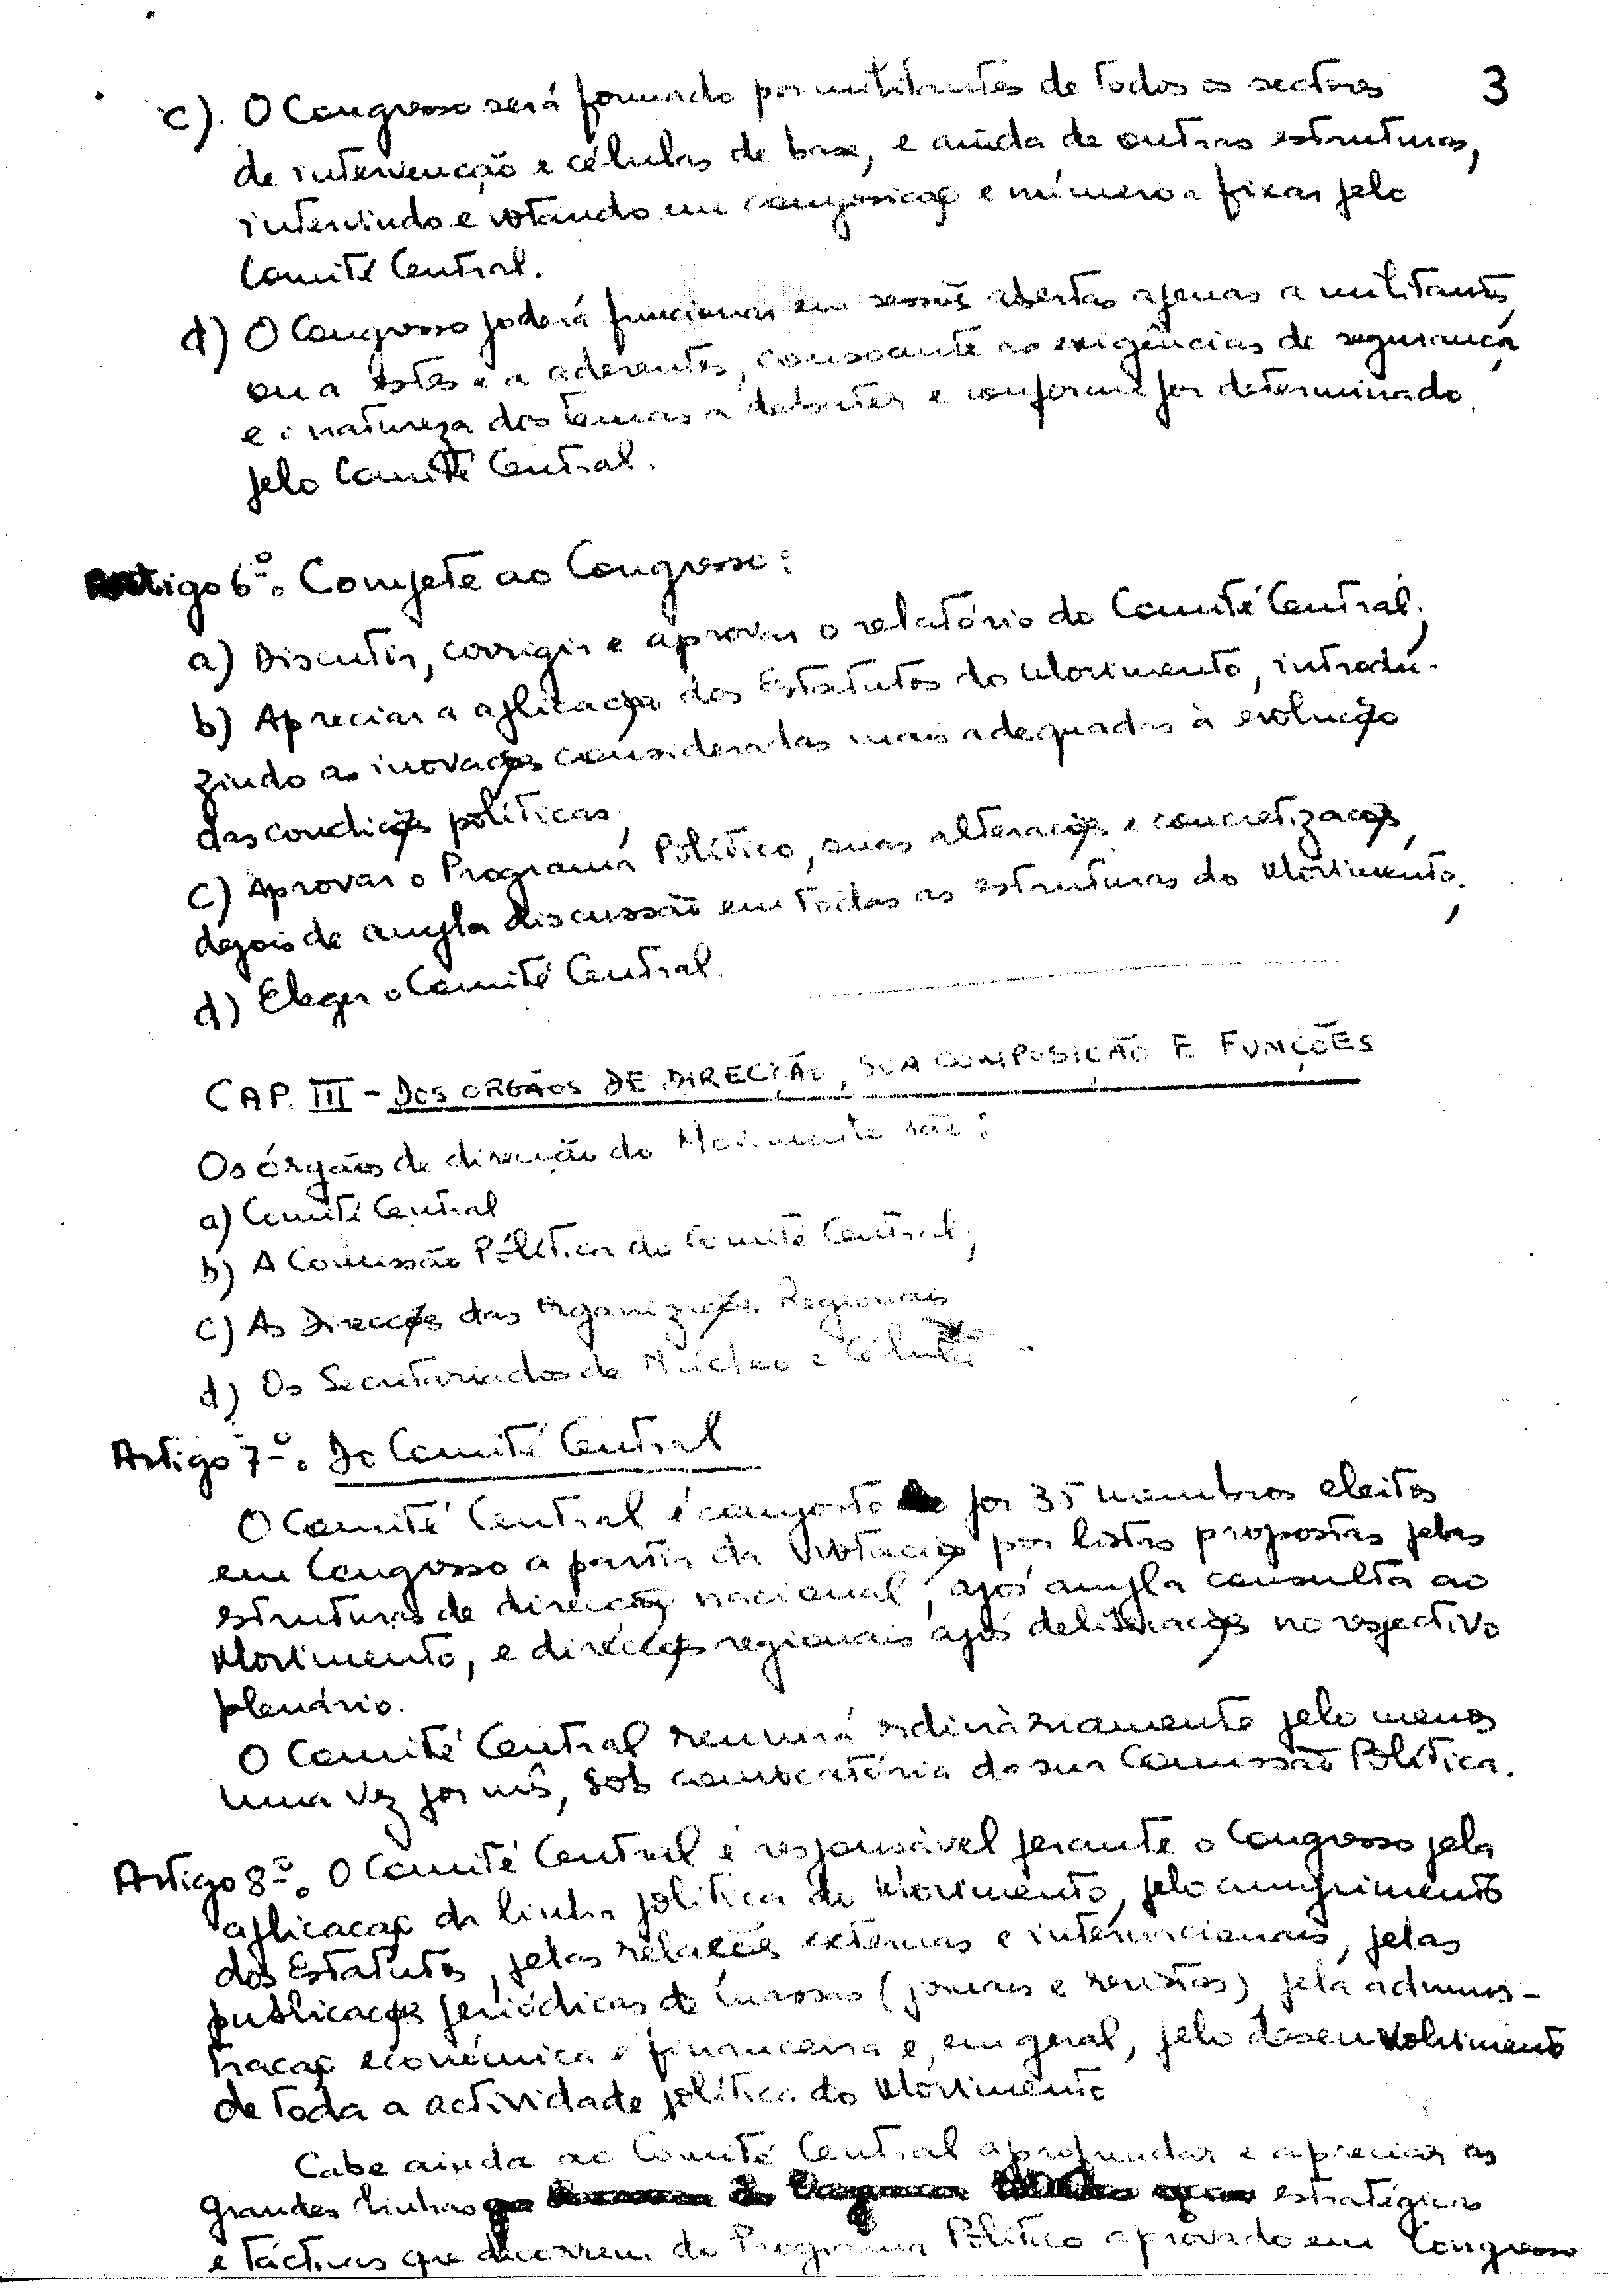 3
c). O Congresso será formado por militantes de todos os sectores
de intervenção e células de base, e ainda de outras estruturas,
intervindo e votando em composição e número a fixar pelo
Comité Central.
d) O Congresso poderá funcionar em sessões abertas apenas a militantes,
ou a estes e a aderentes, consoante as exigências de segurança
e a natureza dos temas a debater e conforme for determinado
pelo Comité Central.
Artigo 6º. Compete ao Congresso:
a) Discutir, corrigir e aprovar o relatório do Comité Central;
b) Apreciar a aplicação dos Estatutos do Movimento, introdu-
zindo as inovações consideradas mais adequadas à evolução
das condições políticas;
c) Aprovar o Programa Político, suas alterações e concretizações,
depois de ampla discussão em todas as estruturas do Movimento;
d) Eleger o Comité Central.
CAP. III - DOS ORGÃOS DE DIRECÇÃO, SUA COMPOSIÇÃO E FUNÇÕES
Os órgãos de direcção do Movimento são:
a) Comité Central
b) A Comissão Política do Comité Central;
c) As Direcções das Organizações Regionais
d) Os Secretariados de Núcleo e Célula
Artigo 7º. Do Comité Central
O Comité Central é composto por 35 membros eleitos
em Congresso a partir da votação por listas propostas pelas
estruturas de direcção nacional, após ampla consulta ao
Movimento, e direcções regionais após deliberações no respectivo
plenário.
O Comité Central reunirá ordinàriamente pelo menos
uma vez por mês, sob convocatória da sua Comissão Política.
Artigo 8º. O Comité Central é responsável perante o Congresso pela
aplicação da linha política do Movimento, pelo cumprimento
dos Estatutos, pelas relações externas e internacionais, pelas
publicações periódicas de massas (jornais e revistas) pela adminis-
tração económica e financeira e, em geral, pelo desenvolvimento
de toda a actividade política do Movimento
Cabe ainda ao Comité Central aprofundar e apreciar as
grandes linhas estratégicas
e tácticas que decorrem do Programa Político aprovado em Congresso